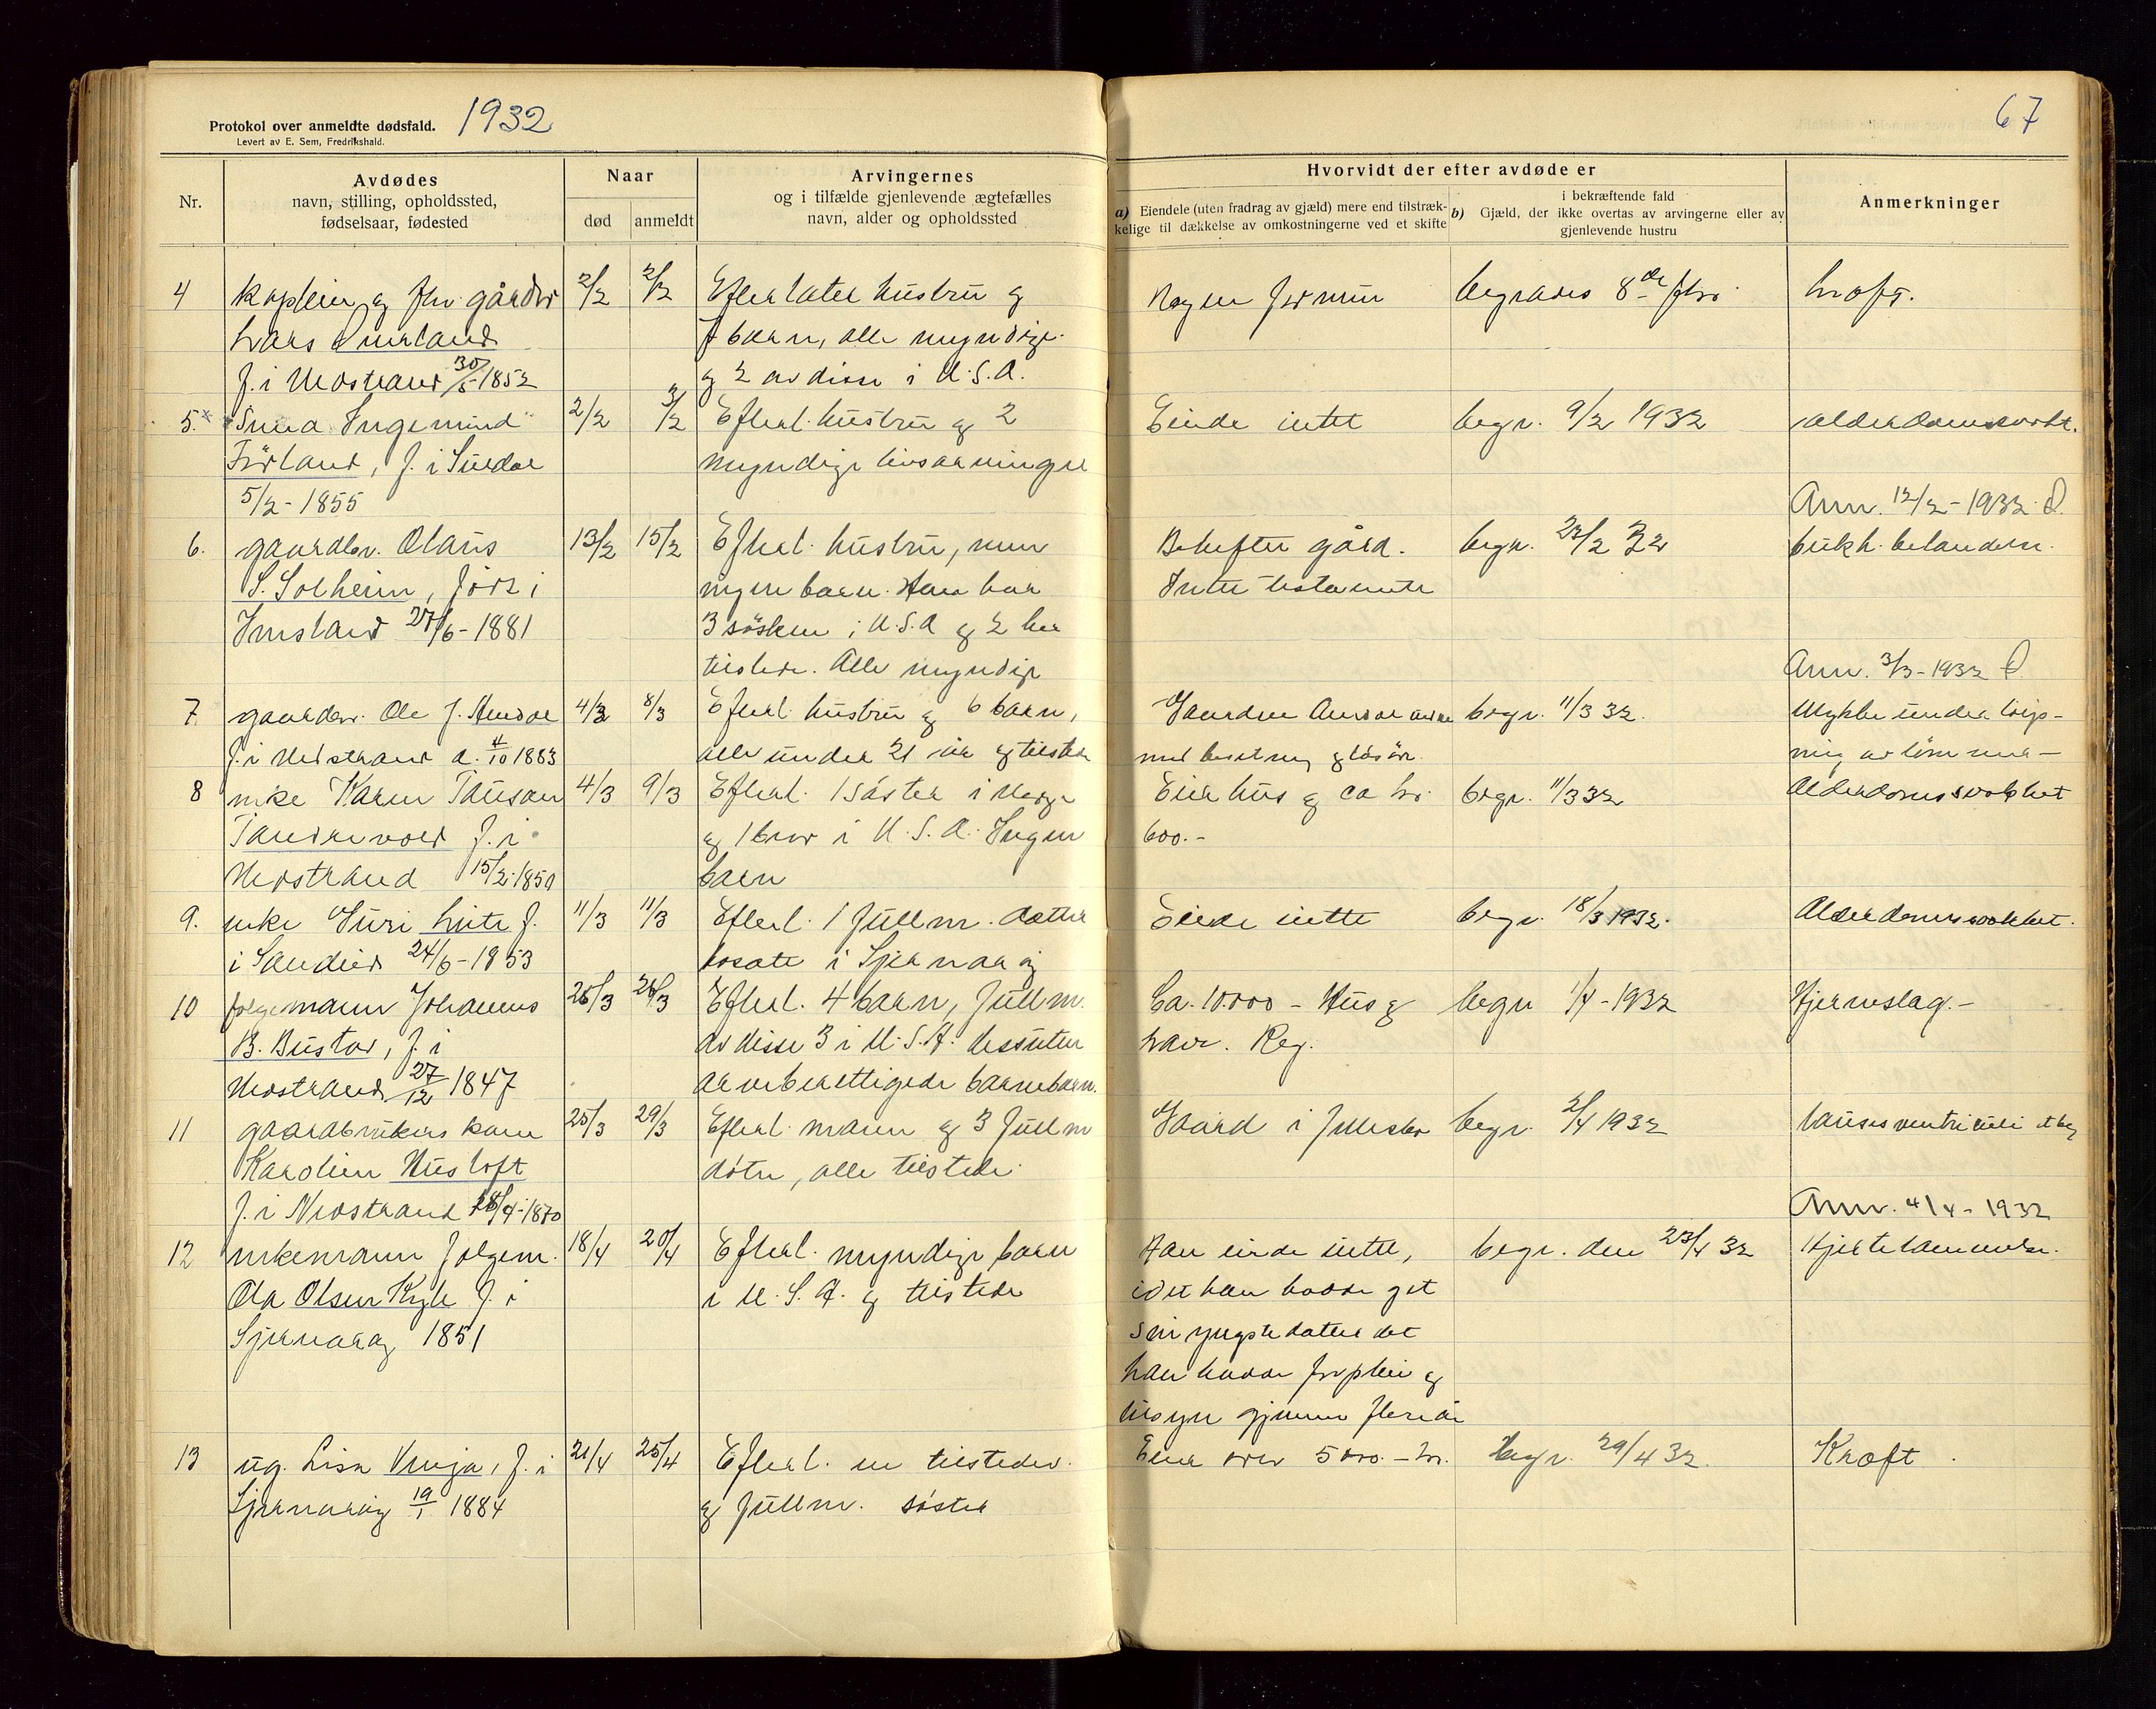 Protokol over anmeldte dødsfald. 1932
Levert av E. Sem, Fredrikshald.
67
Nr.
Avdødes
navn, stilling, opholdssted,
fødselsaar, fødested
Naar
død
anmeldt
Arvingernes
og i tilfælde gjenlevende ægtefælles
navn, alder og opholdssted
Hvorvidt der efter avdøde er
a) Eiendele (uten fradrag av gjæld) mere end tilstræk-
kelige til dækkelse av omkostningerne ved et skifte
i bekræftende fald
b) Gjæld, der ikke overtas av arvingerne eller av
gjenlevende hustru
Anmerkninger
4
gårdbr
Lars
f. i Nedstrand 30/5-1852
2/2
2/2
Efterlater hustru og
7 barn, alle myndige
og 2 av disse i U.S.A.
Nogen formue
begraves 8de
kræft.
5.
Svend Ingemund
Førland, f. i Suldal
5/2-1855
2/2
3/2
Efterl. hustru og 2
myndige livsarvinger
Eiede intet
begr. 9/2 1932
Ann. 12/2-1932
6.
gaardbr. Olaus
S. Solheim, født i
Imsland 27/6-1881
13/2
15/2
Efterl. hustru, men
ingen barn. Han har
3 søsken i U.S.A og 2 her
tilstede. Alle myndige
Behefter gård.
Intet testamente
begr. 23/2 32
bukh. betendelse.
Ann. 3/3-1932
7
gaardbr. Ole J. Amdal
f. i Nedstrand d. 4/10 1883
4/3
8/3
Efterl. hustru og 6 barn,
alle under 21 år og tilstede
Gaarden Amdal
med besetning og løsøre.
begr. 11/3 32.
Ulykke under
8
enke Karen Tausan
Tandravold f. i
Nedstrand 15/2-1850
4/3
9/3
Efterl. 1 søster i Norge
og 1 bror i U.S.A. Ingen
barn
Eier hus og ca kr.
600.-
begr. 11/3 32
Alderdomssvakhet
9.
enke Guri
i Sauda 24/6-1853
11/3
11/3
Efterl. 1 fullm. datter
bosatt i Sjernarøy
Eiede intet
begr. 18/3 1932.
Alderdomssvakhet.
10
folgemann Johannes
B. Bustad, f. i
Nedstrand 27/12 1847
26/3
26/3
Efterl. 4 barn, fullm.
av disse 3 i U.S.A. dessuten
arveberettigede barnebarn.
Ca. 10.000 - Hus og
begr 1/4-1932
Hjerneslag.-
11
gaardbrukers kone
Karolin Husloft
f. i Nedstrand 18/4-1870
25/3
29/3
Efterl. mann og 3 fullm
døtre, alle tilstede.
Gaard i fellesbo
begr. 2/4 1932
Ann. 4/4-1932
12
enkemann folgem.
Ola Olsen f. i
Sjernarøy 1851
18/4
20/4
Efterl. myndige barn
i U.S.A. og tilstede
Han eiede intet,
idet han hadde git
sin yngste datter det
han hadde for pleie og
tilsyn gjennem flere år
begr. den 23/4 32
Hjertelammelse.
13
ug. Lisa f. i
Sjernarøy 19/1 1884
21/4
25/4
Efterl. en tilstedev.
og fullm. søster
Eier over 5000.- kr.
begr. 29/4 32.
Kræft